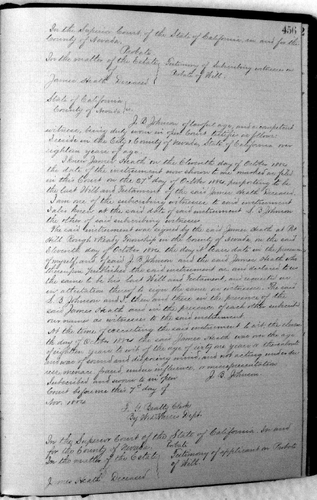 456
In the Superior Court of the State of California in and for the
County of Nevada.
Probate
In the matter of the Estate, Testimony of Subscribing witness on
of Probate of Will.
James Heath Deceased
State of California,
County of Nevada
J. B. Johnson of lawful age, and a competent
witness, being duly sworn in open Court testifies as follows
I reside in the City & County of Nevada, State of California over
eighteen years of age.
I knew James Heath on the Eleventh day of October 1884
the date of the instrument now shown to me marked as filed
in this Court on the 27th day of October 1884 purporting to be
the last Will and Testament of the said James Heath Deceased
I am one of the subscribing witnesses to said instrument
also at the said date of said instrument S. B. Johnson
the other of said subscribing witnesses
The said instrument was signed by the said James Heath at
Township in the County of Nevada on the said
Eleventh day of October 1884 the day it bears date in the presence
of myself and of said J. B. Johnson and the said James Heath
thereupon published the said instrument as and declared
the same to be his last Will and Testament, and requested me
in attestation thereof to sign the same as witness. The said
S. B. Johnson and I then and there in the presence of the
said James Heath and in the presence of each other subscribed
our names as witnesses to the said instrument.
At the time of executing the said instrument to wit, the eleventh
day of October 1884 the said James Heath was over the age
of eighteen years to wit of the age of sixty one years or thereabout
and was of sound and disposing mind, and not acting under
menace, fraud undue influence, or misrepresentation
Subscribed and sworn to in open J. B. Johnson
Court before me this 7th day of
Nov. 1884
Beatty Clerk
By Dept.
In the Superior Court of the State of California in and
for the County of Nevada
Probate
In the matter of the Estate Testimony of applicant on Probate
of of Will.
James Heath Deceased